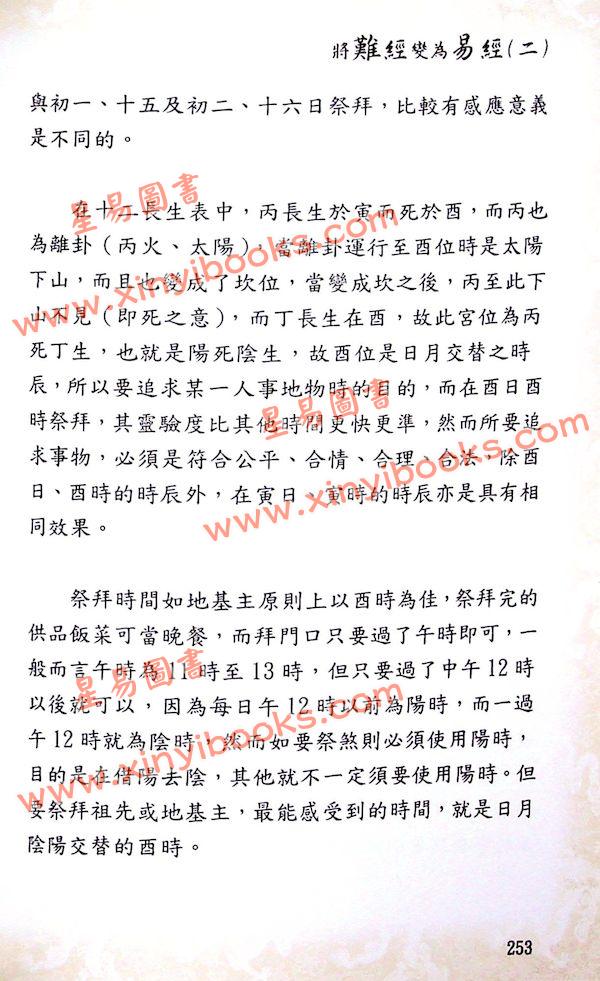 將難經變為易經(二)
與初一、十五及初二、十六日祭拜，比較有感應意義
是不同的。
星易圖書
在十二長生表中，丙長生於寅而死於酉，而丙也
為離卦（丙火、太陽），當離卦運行至酉位時是太陽
下山，而且也變成了坎位，當變成坎之後，丙至此下
山不見（即死之意），而丁長生在酉，故此宮位為丙
www.xinyibooks.com
死丁生，也就是陽死陰生，故酉位是日月交替之時
辰，所以要追求某一人事地物時的目的，而在酉日酉
時祭拜，其靈驗度比其他時間更快更準，然而所要追
星易圖書
求事物，必須是符合公平、合情、合理、合法，除酉
日、酉時的時辰外，在寅日、寅時的時辰亦是具有相
www.xinyibooks.com
同效果。
祭拜時間如地基主原則上以酉時為佳，祭拜完的
供品飯菜可當晚餐，而拜門口只要過了午時即可，一
般而言午時為11時至13時，但只要過了中午12時
星易圖書
以後就可以，因為每日午12時以前為陽時，而一過
午12時就為陰時，然而如要祭煞則必須使用陽時，
目的是在借陽去陰，其他就不一定須要使用陽時。但
www.xinyibooks.com
要祭拜祖先或地基主，最能感受到的時間，就是日月
陰陽交替的酉時。
253